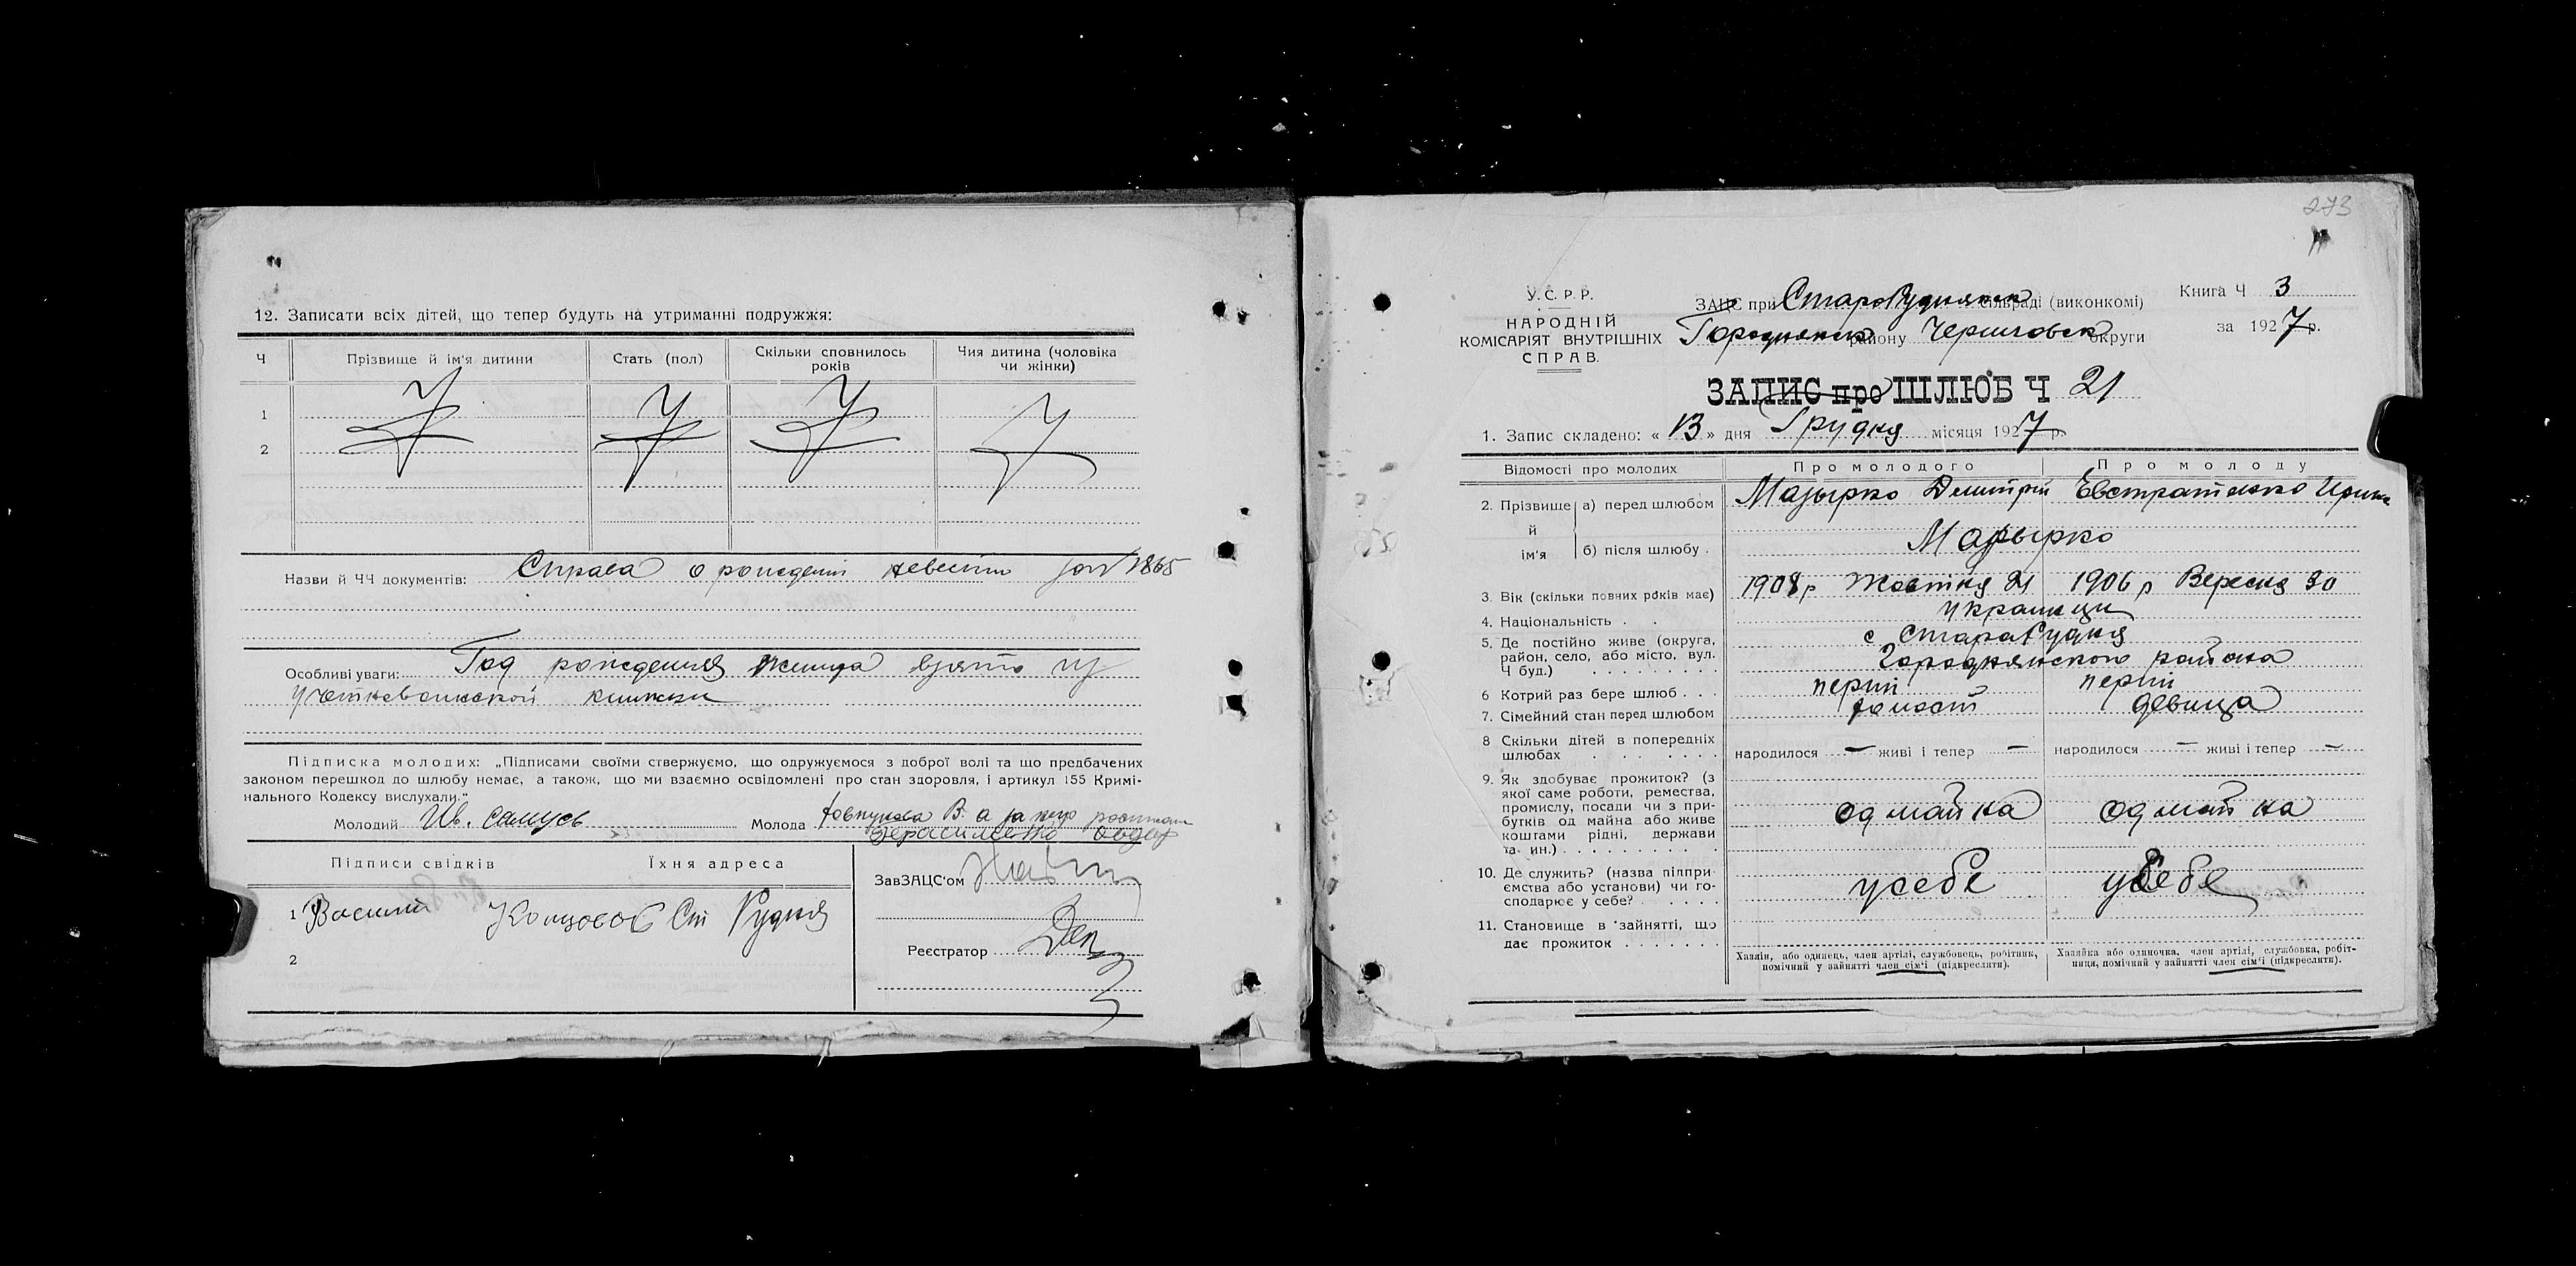 12. Записати всіх дітей, що тепер будуть на утриманні подружжя:
Ч Прізвище й ім'я дитини Стать (пол) Скільки сповнилось років Чия дитина (чоловіка чи жінки)
1
2
Назви й ЧЧ документів: Справа о рождении невести за № 1865
Особливі уваги: Год рождения жениха взято из
учетновоинской книжки
Підписка молодих: „Підписами своїми стверджуємо, що одружуємося з доброї волі та що предбачених
законом перешкод до шлюбу немає, а також, що ми взаємно освідомлені про стан здоровля, і артикул 155 Кримі-
нального Кодексу вислухали."
Молодий Ив. Самусь Молода В. а за
Підписи свідків Їхня адреса
ЗавЗАЦС'ом
1 Василий Концовой Ст Рудня
Реєстратор
2
273
У.С.Р.Р.
НАРОДНІЙ
КОМІСАРІЯТ ВНУТРІШНІХ
СПРАВ.
ЗАЦС при СтароРуднянск сільраді (виконкомі)
Городнянск району Черниговск округи
Книга Ч 3
за 1927 р.
ЗАПИС про ШЛЮБ Ч 21
1. Запис складено: « 13 » дня Грудня місяця 1927 р.
Відомості про молодих Про молодого Про молоду
2. Прізвище й ім'я а) перед шлюбом Мазырко Дмитрій Евстратенко Ирина
б) після шлюбу . Мазырко
3. Вік (скільки повних років має) 1908 р Жовтня 21 1906 р Вересня 30
4. Національність . . Украинци
5. Де постійно живе (округа, район, село, або місто, вул. Ч буд.) с Стара Рудня
Городнянского района
6 Котрий раз бере шлюб . . . перший перший
7. Сімейний стан перед шлюбом холост девица
8 Скільки дітей в попередніх шлюбах народилося — живі і тепер — народилося — живі і тепер —
9. Як здобуває прожиток? (з
якої саме роботи, ремества,
промислу, посади чи з при-
бутків од майна або живе
коштами рідні, держави
та ин.) од майна од майна
10. Де служить? (назва підпри-
ємства або установи) чи го-
сподарює у себе? усебе усебе
11. Становище в зайнятті, що
дає прожиток
Хазяїн, або одинець, член артілі, службовець, робітник,
помічний у зайнятті член сім'ї (підкреслити).
Хазяйка або одиночка, член артілі, службовка, робіт-
ниця, помічний у зайнятті член сім'ї (підкреслити).